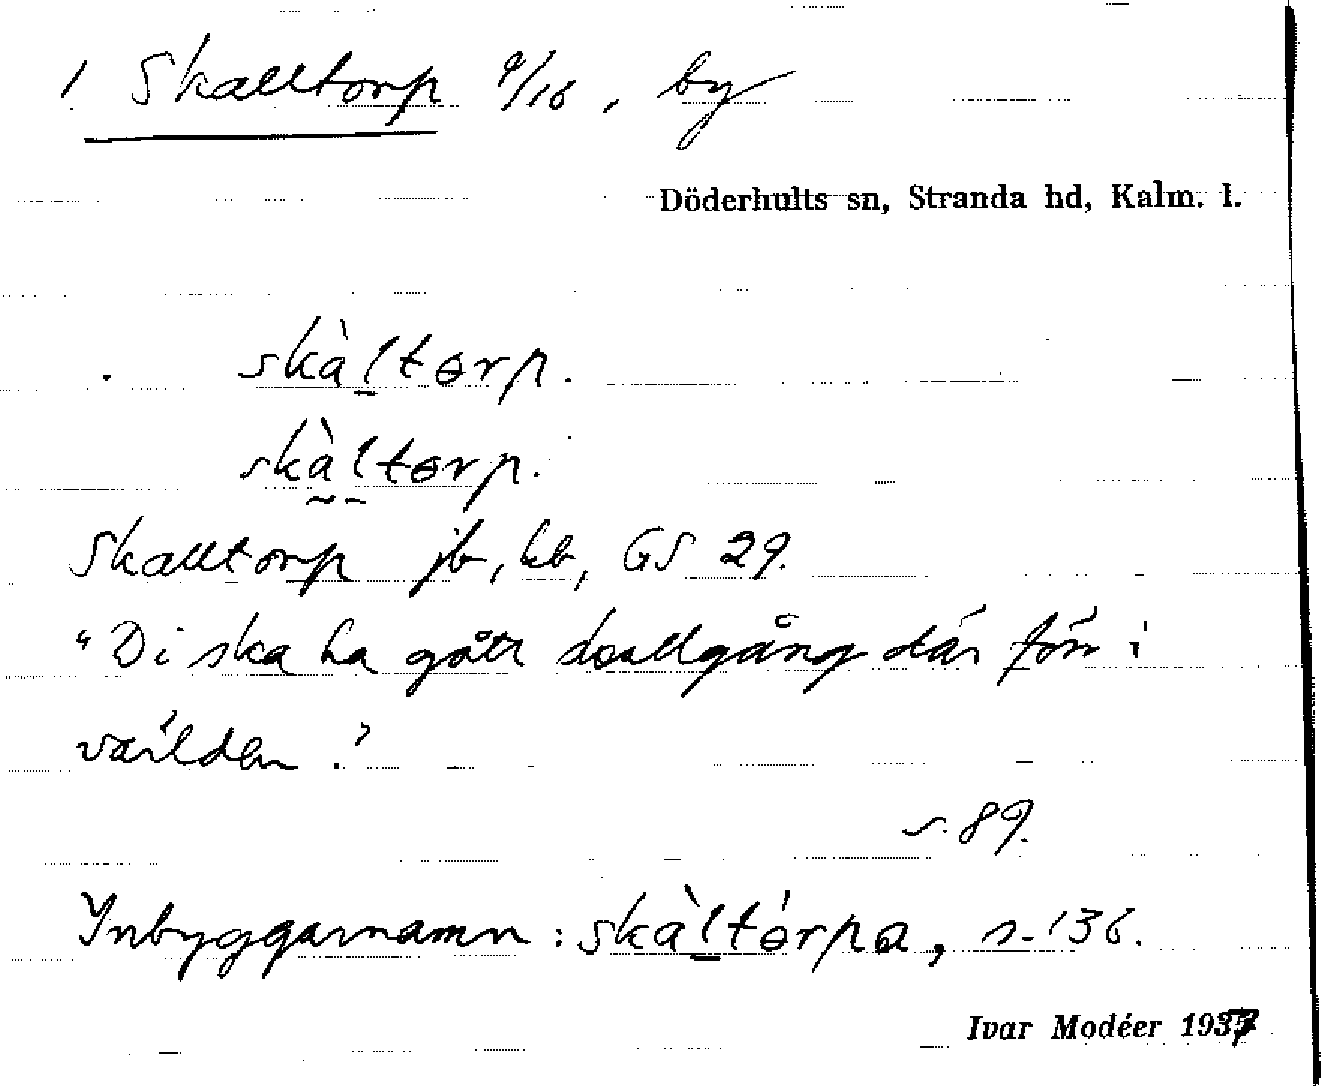 1 Skalltorp 9/16, by
Döderhults sn, Stranda hd, Kalm. l.
skàltɵrp.
skàltɵrp.
Skalltorp jb, kb, GS 29.
"Di ska ha gått skallgång där förr i
världen."
s. 89.
Inbyggarnamn: skàltɵ́rpa, s. 136.
Ivar Modéer 1937